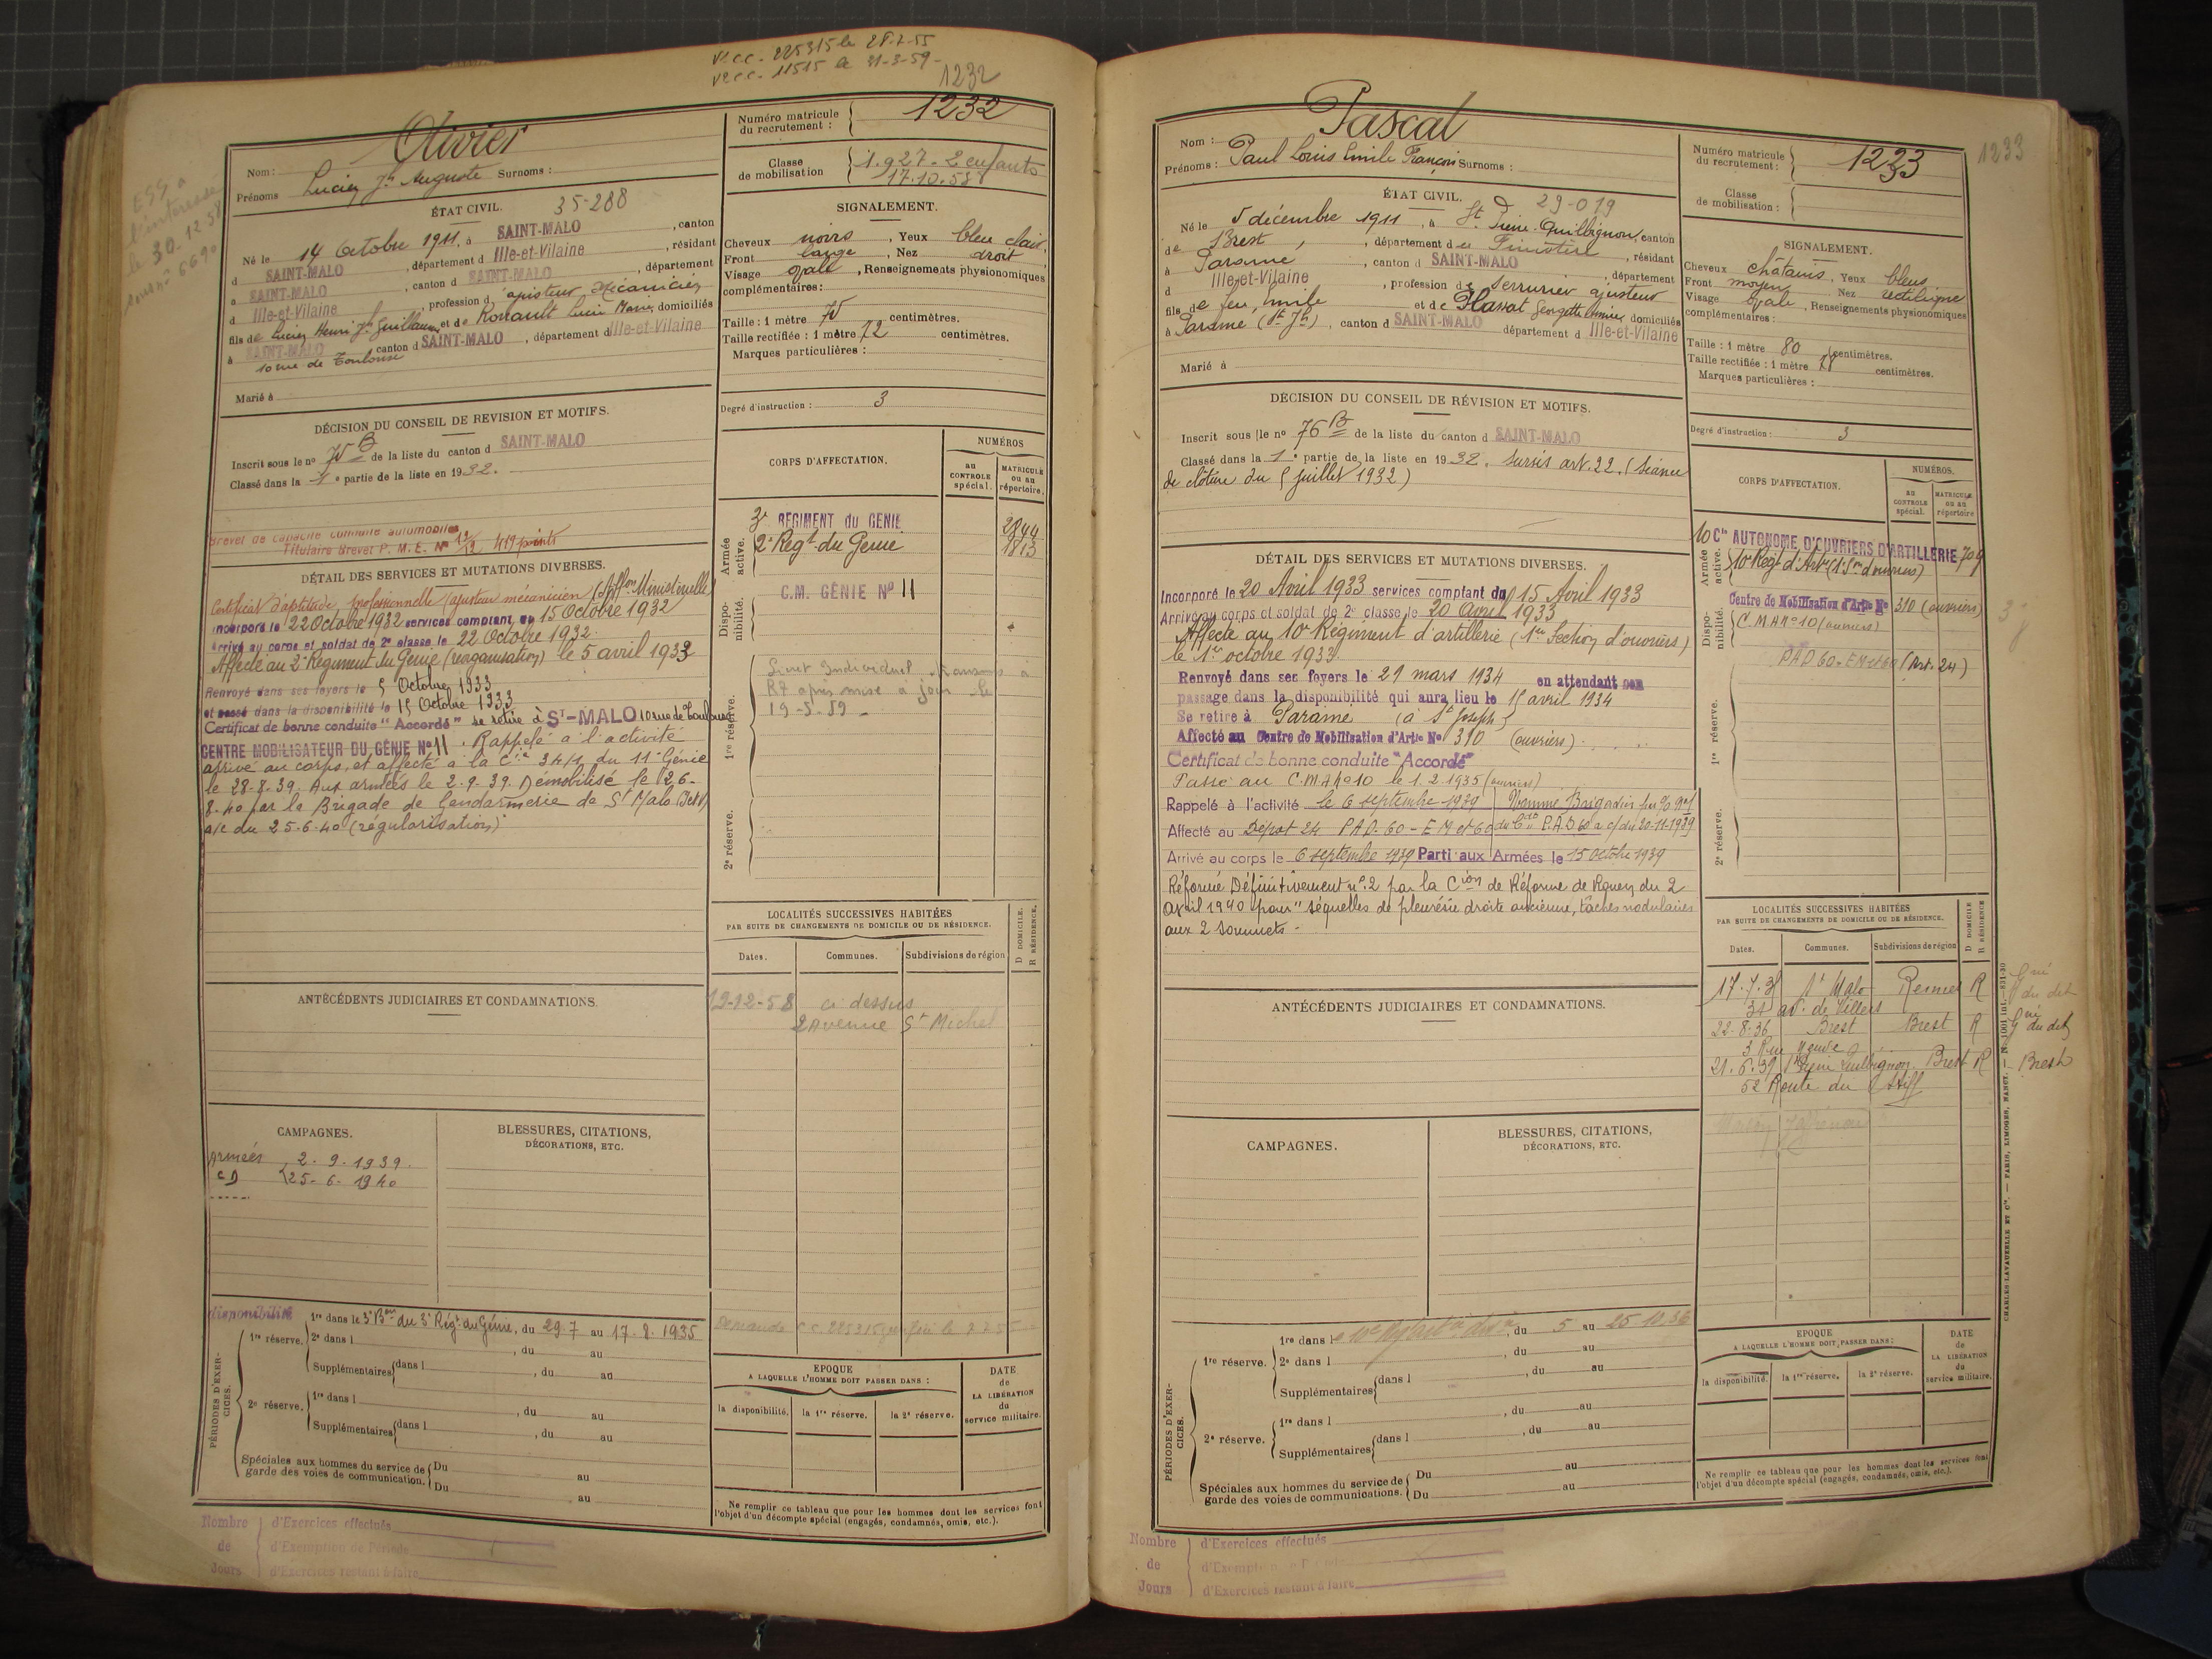 Vt. c.c. 225315 le 28-2-55
vt c.c. 11515 le 31-3-59-
1232
ESS a
l'intéressé
le 30-12-58
sous n° 6690
Olivier
Nom :
Prénoms Lucien Jh Auguste Surnoms :
ÉTAT CIVIL. 35-288
Né le 14 Octobre 1911, à SAINT-MALO, canton
d SAINT-MALO, département d Ille-et-Vilaine, résidant
à SAINT-MALO, canton d SAINT-MALO, département
d Ille-et-Vilaine, profession d'ajusteur mécanicien
fils de Lucien Henri Jh Guillaume et de Rouault Marie, domiciliés
à SAINT-MALO canton d SAINT-MALO, département d Ille-et-Vilaine
10 rue de Toulouse
Marié à
DÉCISION DU CONSEIL DE REVISION ET MOTIFS.
Inscrit sous le no 75 B de la liste du canton d SAINT-MALO
Classé dans la 1e partie de la liste en 1932.
Brevet de capacité conduite automobiles
Titulaire Brevet P. M. E. No 419 points
DÉTAIL DES SERVICES ET MUTATIONS DIVERSES.
Certificat d'aptitude professionnelle (ajusteur mécanicien) (Affon Ministérielle)
Incorporé le 22 Octobre 1932 services comptant du 15 Octobre 1932
Arrivé au corps et soldat de 2e classe le 22 Octobre 1932.
Affecté au 2e Régiment du Génie (réorganisation) le 5 avril 1933
Renvoyé dans ses foyers le 5 Octobre 1933
et passé dans la disponibilité le 15 Octobre 1933
Certificat de bonne conduite "Accordé" se retire à ST-MALO 10 rue de Toulouse
CENTRE MOBILISATEUR DU GÉNIE No 11. Rappelé à l'activité
arrivé au corps et affecté à la Cie 34/1 du 11e Génie
le 28-8-39. Aux armées le 2-9-39. Démobilisé le 26-
8-40 par la Brigade de Gendarmerie de St Malo
a/c du 25-6-40 (régularisation)
ANTÉCÉDENTS JUDICIAIRES ET CONDAMNATIONS.
CAMPAGNES.
Armées 2-9-1939.
CD 25-6-1940
BLESSURES, CITATIONS,
DÉCORATIONS, ETC.
disponibilité
PÉRIODES D'EXERCICES.
1re réserve. 1re dans le 3e Bon du 3e Régt du Génie, du 29.7 au 17.8.1935
2e dans l , du au
Supplémentaires dans l , du au
2e réserve. 1re dans l , du au
Supplémentaires dans l , du au
Spéciales aux hommes du service de Du au
garde des voies de communication. Du au
Nombre d'Exercices effectués
de d'Exemption de Période
Jours d'Exercices restant à faire
Numéro matricule
du recrutement : 1232
Classe
de mobilisation 1.927-2 enfants
17.10.58
SIGNALEMENT.
Cheveux noirs, Yeux bleu clair,
Front large, Nez droit,
Visage ovale, Renseignements physionomiques
complémentaires :
Taille : 1 mètre 70 centimètres.
Taille rectifiée : 1 mètre 72 centimètres.
Marques particulières :
Degré d'instruction : 3
CORPS D'AFFECTATION.
NUMÉROS
au CONTROLE spécial.
MATRICULE ou au répertoire.
Armée active.
3e RÉGIMENT du GÉNIE 2844
2e Regt du Genie 1813
Disponibilité.
C.M. GÉNIE No 11
1re réserve.
Livret Individuel transmis à
R7 après mise à jour le
19-5-59-
2e réserve.
LOCALITÉS SUCCESSIVES HABITÉES
PAR SUITE DE CHANGEMENTS DE DOMICILE OU DE RÉSIDENCE.
D DOMICILE.
R RÉSIDENCE.
Dates. Communes. Subdivisions de région
12-12-58 ci dessus
2 Avenue St Michel
Demande c.c. 225315
EPOQUE
A LAQUELLE L'HOMME DOIT PASSER DANS :
la disponibilité. la 1re réserve. la 2e réserve.
DATE
de
LA LIBÉRATION
du
service militaire.
Ne remplir ce tableau que pour les hommes dont les services font
l'objet d'un décompte spécial (engagés, condamnés, omis, etc.).
Pascal
Nom :
Prénoms : Paul Louis Emile François Surnoms :
ÉTAT CIVIL. 29-019
Né le 5 décembre 1911, à St Pierre Quilbignon, canton
de Brest, département du Finistère, résidant
à Paramé, canton d SAINT-MALO, département
d Ille-et-Vilaine, profession de Serrurier ajusteur
fils de feu Emile et de Georgette domiciliés
à Paramé (St Jh), canton d SAINT-MALO département d Ille-et-Vilaine
Marié à
DÉCISION DU CONSEIL DE RÉVISION ET MOTIFS.
Inscrit sous le no 76 B de la liste du canton d SAINT-MALO
Classé dans la 1e partie de la liste en 1932. Sursis art. 22. (Séance
de clôture du 5 juillet 1932)
DÉTAIL DES SERVICES ET MUTATIONS DIVERSES.
Incorporé le 20 Avril 1933 services comptant du 15 Avril 1933
Arrivé au corps et soldat de 2e classe le 20 avril 1933
Affecté au 10e Régiment d'artillerie (1re Section d'ouvriers)
le 1er octobre 1933.
Renvoyé dans ses foyers le 29 mars 1934 en attendant son
passage dans la disponibilité qui aura lieu le 15 avril 1934
Se retire à Paramé (à St Joseph)
Affecté au Centre de Mobilisation d'Artie No 310 (ouvriers)
Certificat de bonne conduite "Accordé"
Passé au C.M.A no 10 le 1.2.1935 (ouvriers)
Rappelé à l'activité le 6 septembre 1939 Nommé Brigadier
Affecté au Dépot 24 PAD-60-EM et 60 du Cdt P.A.D 60 a c/ du 20-11-1939
Arrivé au corps le 6 septembre 1939 Parti aux Armées le 15 octobre 1939
Réformé Définitivement no 2 par la Cion de Réforme de Rouen du 2
avril 1940 pour "séquelles de pleurésie droite ancienne, tâches nodulaires
aux 2 sommets-
ANTÉCÉDENTS JUDICIAIRES ET CONDAMNATIONS.
CAMPAGNES.
BLESSURES, CITATIONS,
DÉCORATIONS, ETC.
PÉRIODES D'EXERCICES.
1re réserve. 1re dans le 10e , du 5 au 25 10.36
2e dans l , du au
Supplémentaires dans l , du au
2e réserve. 1re dans l , du au
Supplémentaires dans l , du au
Spéciales aux hommes du service de Du au
garde des voies de communications. Du au
Nombre d'Exercices effectués
de d'Exemption de Période
Jours d'Exercices restant à faire
Numéro matricule
du recrutement : 1233
1233
Classe
de mobilisation :
SIGNALEMENT.
Cheveux châtains, Yeux bleus
Front moyen Nez rectiligne
Visage ovale, Renseignements physionomiques
complémentaires :
Taille : 1 mètre 80 centimètres.
Taille rectifiée : 1 mètre 78 centimètres.
Marques particulières :
Degré d'instruction : 3
CORPS D'AFFECTATION.
NUMÉROS.
au CONTROLE spécial.
MATRICULE ou au répertoire
Armée active.
10 Cie AUTONOME D'OUVRIERS D'ARTILLERIE 709
10e Regt d'Artie (1e Son d'ouvriers)
Disponibilité.
Centre de Mobilisation d'Artie No 310 (ouvriers)
C.M.A no 10 (ouvriers)
PAD 60-EM et 60 (Art. 24)
1re réserve.
2e réserve.
LOCALITÉS SUCCESSIVES HABITÉES
PAR SUITE DE CHANGEMENTS DE DOMICILE OU DE RÉSIDENCE.
D DOMICILE
R RÉSIDENCE
Dates. Communes. Subdivisions de région
17.7.35 St Malo Rennes R
34 av. de Villers
22-8-36 Brest Brest R
3 Rue Neuve
21.6.37 St Pierre Quilbignon Brest R Brest
52 Route du Stiff
EPOQUE
A LAQUELLE L'HOMME DOIT PASSER DANS :
la disponibilité. la 1re réserve. la 2e réserve.
DATE
de
LA LIBÉRATION
du
service militaire.
Ne remplir ce tableau que pour les hommes dont les services font
l'objet d'un décompte spécial (engagés, condamnés, omis, etc.).
CHARLES-LAVAUZELLE ET Cie. — PARIS, LIMOGES, NANCY.